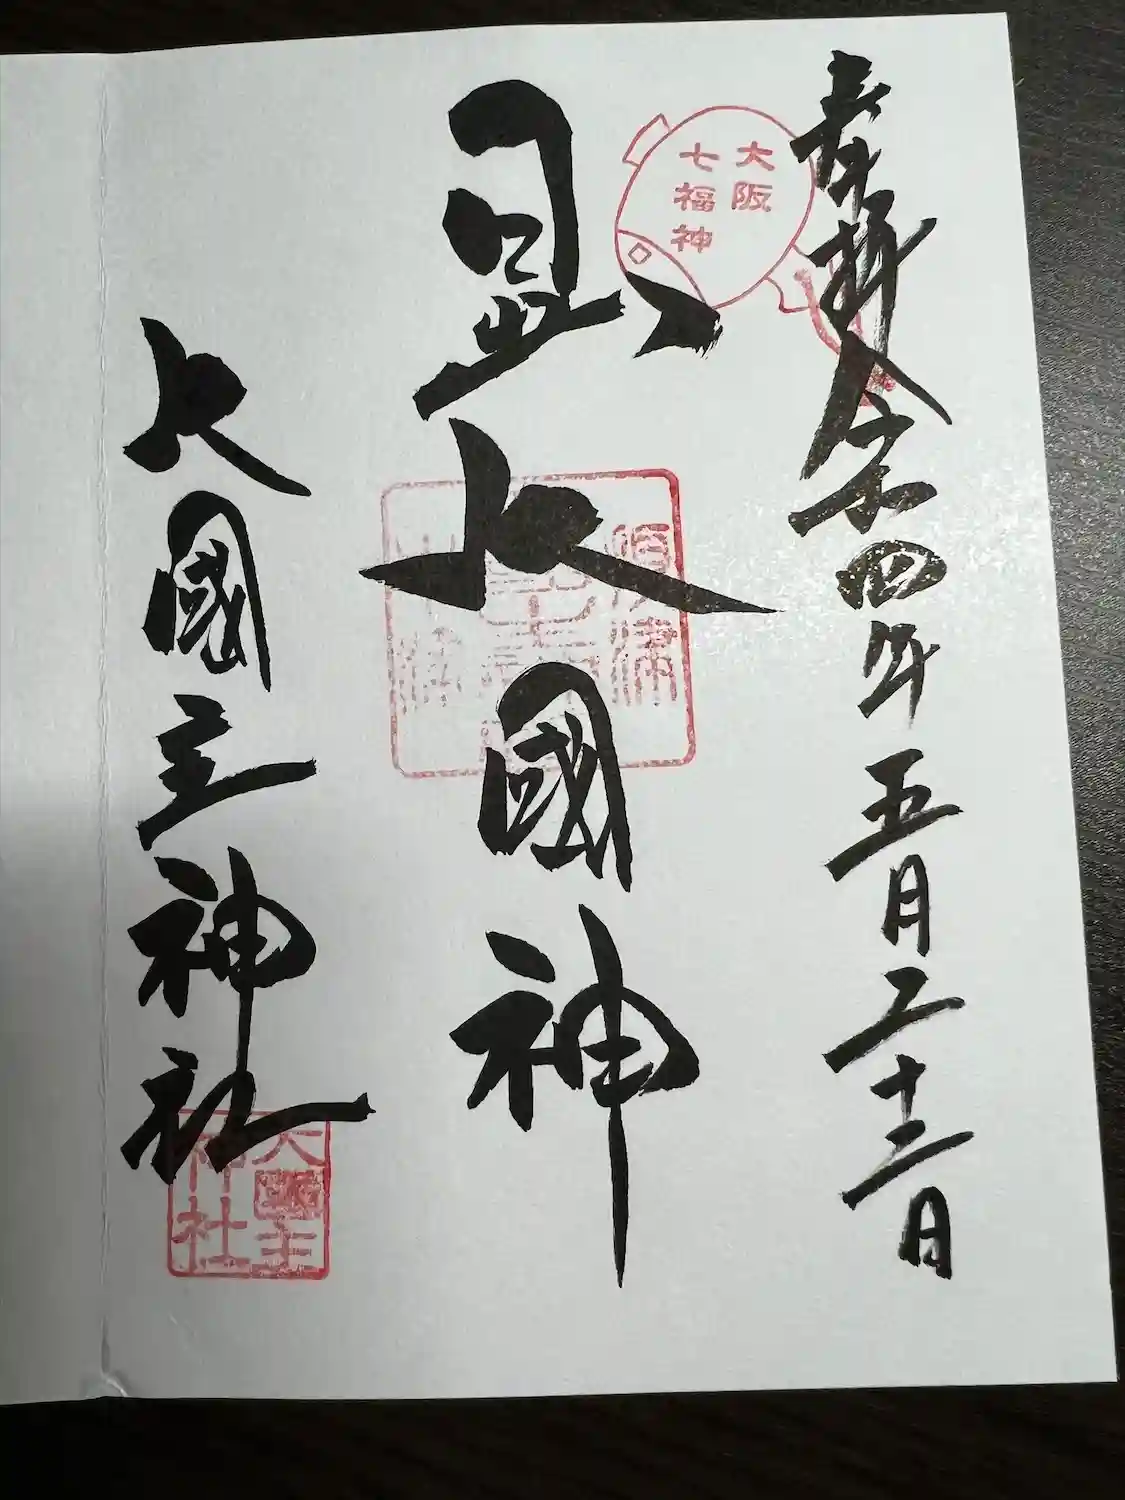 奉拝 令和四年五月二十二日
大阪
七福神
日出大國神
大國主神社
大國主
神社